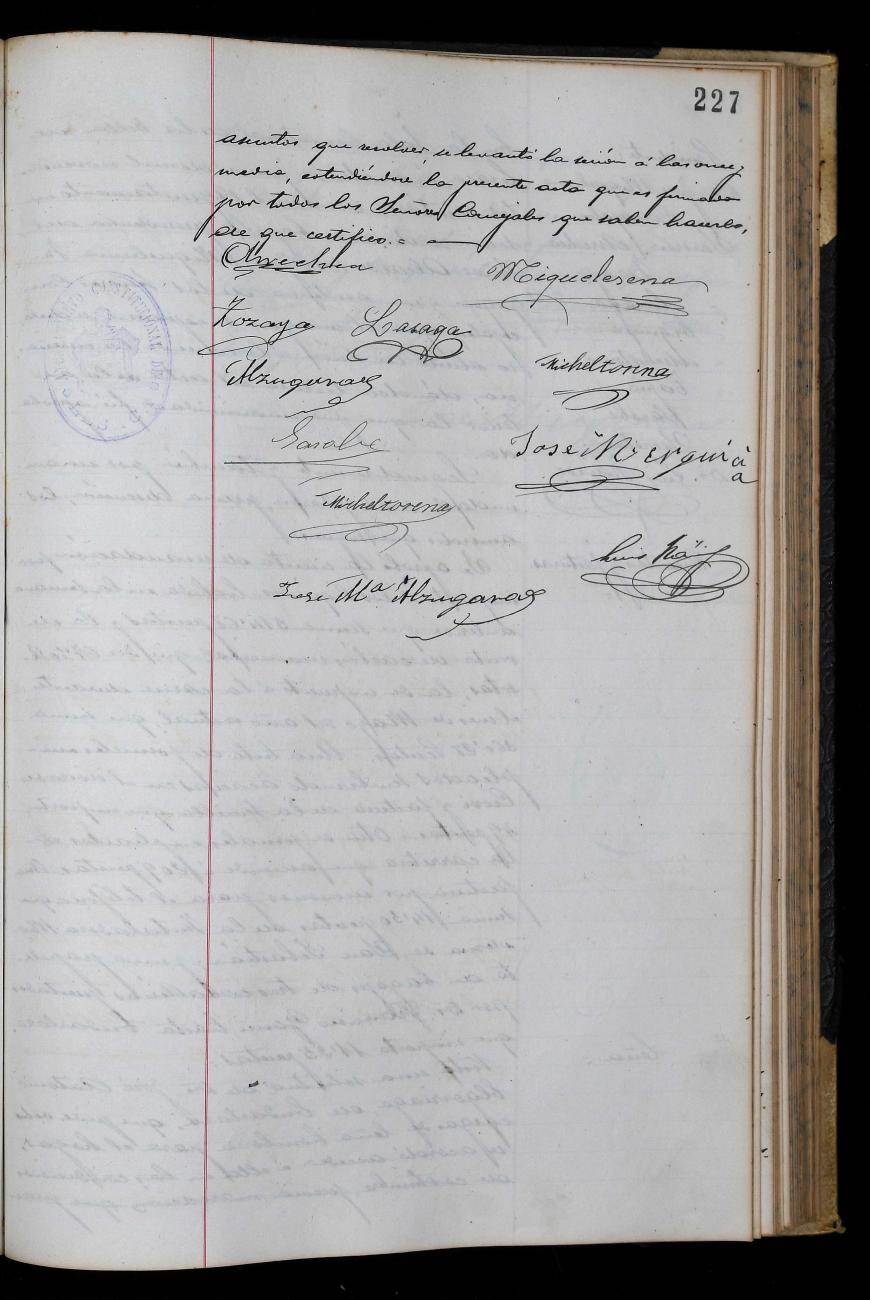 227
asuntos que resolver, se levantó la sesión á las once y
media, extendiéndose la presente acta que es firmada
por todos los Señores Concejales que saben hacerlo,
de que certifico.=
Miquelerena
Zozaya Lasaga
Alzugaray Micheltorena
José Mª
Micheltorena
Luis
José Mª Alzugaray
CONSTITUCIONAL